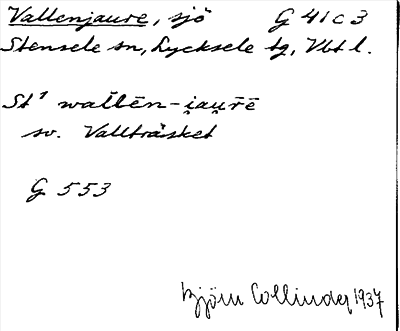 Vallenjaure, sjö G 41 c 3
Stensele sn, Lycksele tg, Vbt l.
St¹ wallēn-i̯au̯rē
sv. Vallträsket
G 553
Björn Collinder 1937